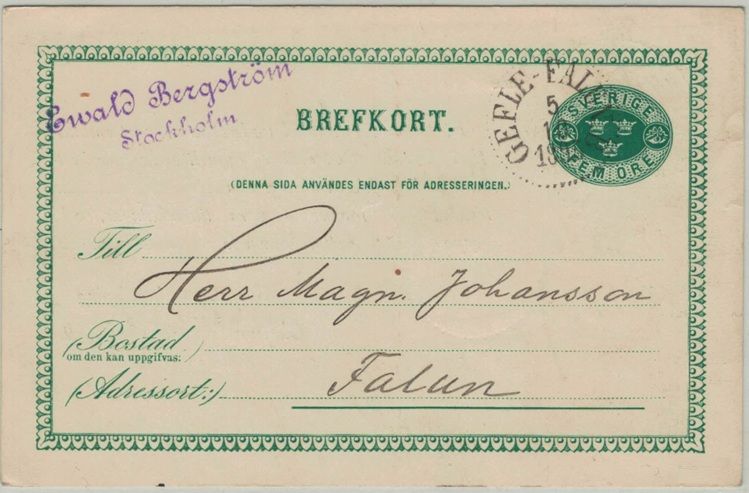 Ewald Bergström
Stockholm
BREFKORT.
GEFLE-FAL
5
1
SVERIGE
FEM ÖRE
(DENNA SIDA ANVÄNDES ENDAST FÖR ADRESSERINGEN.)
Till
Herr Magn. Johansson
(Bostad
om den kan uppgifvas:)
(Adressort:)
Falun